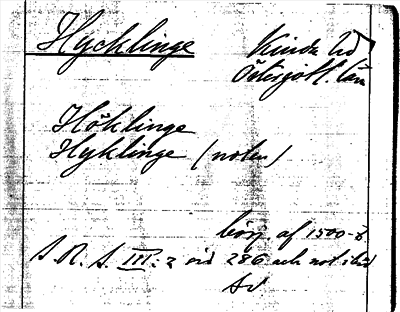 Hycklinge Kinda hd
Östergötl. län
Höklinge
Hyklinge (noten)
börj. af 1500-t
S R. S. III: 2 sid 286 och not ibid